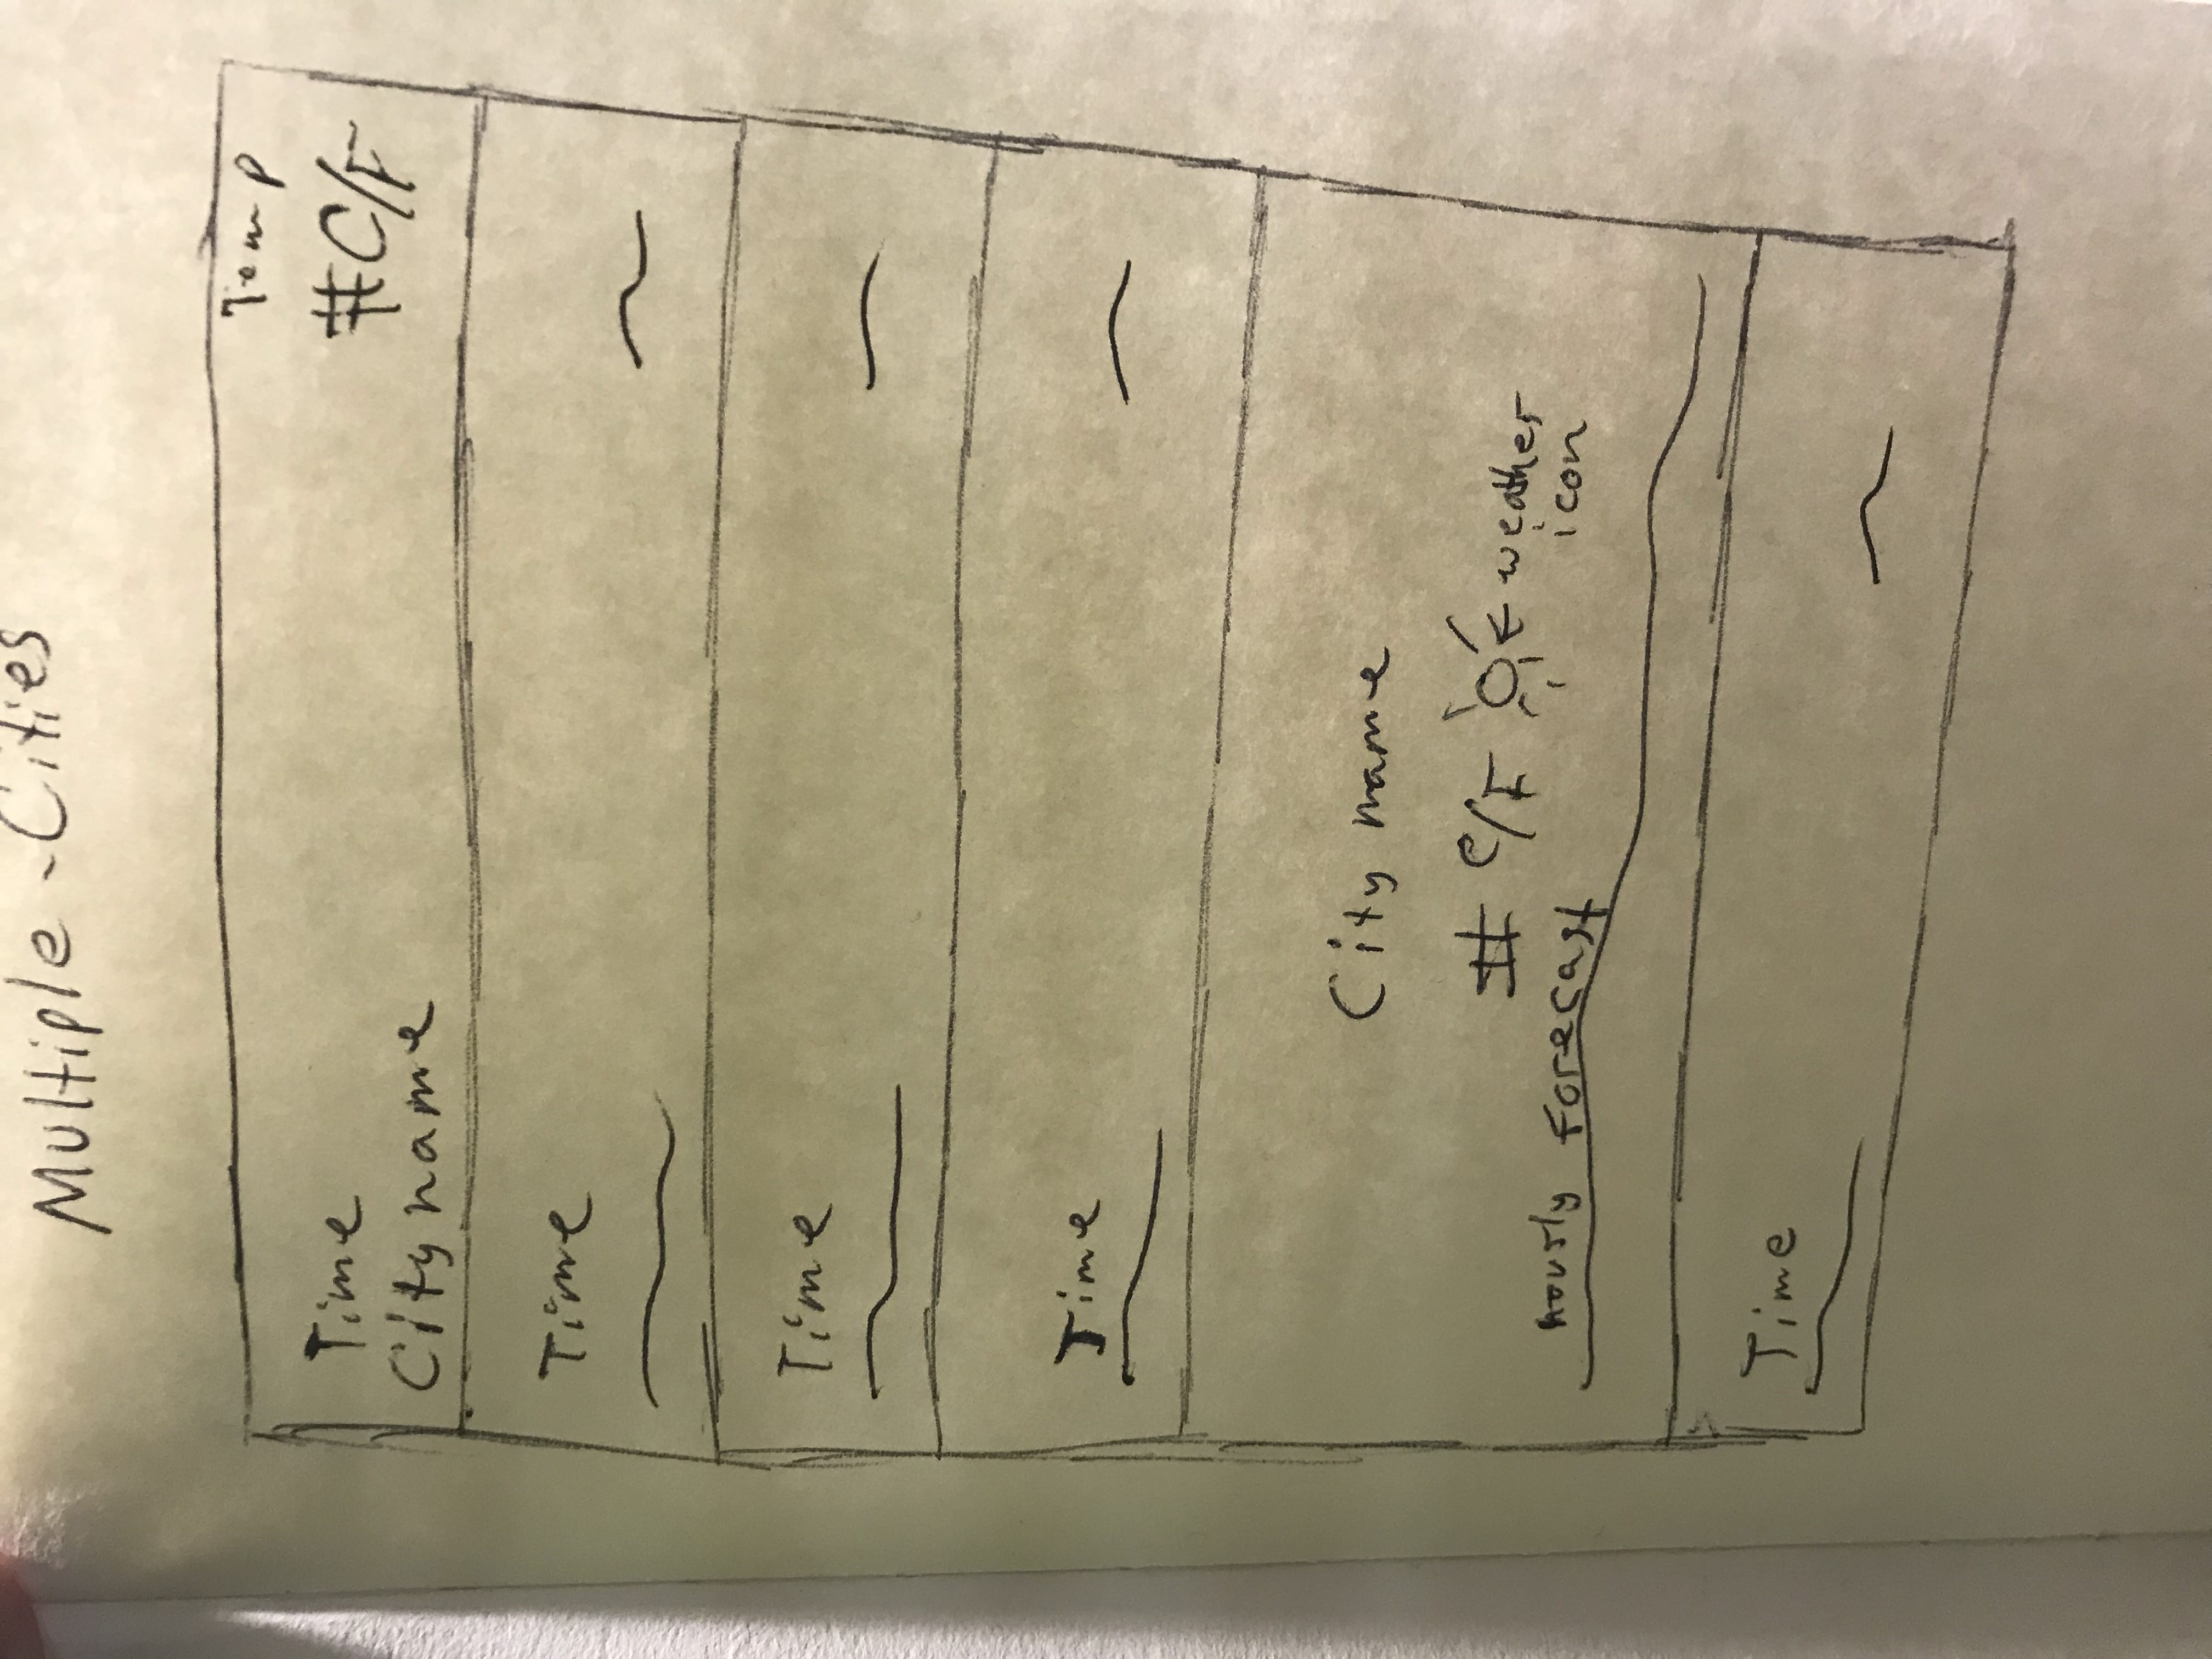 Multiple - Cities
Temp
Time
#C/F
City name
Time
Time
Time
City name
# C/F weather
icon
hourly Forecast
Time